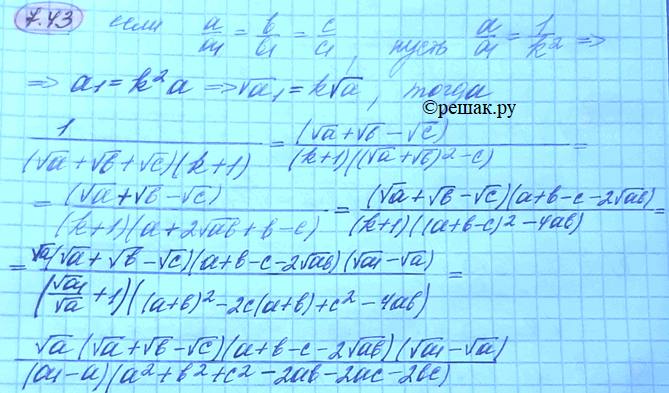 7.43 если a/a₁ = b/b₁ = c/c₁, пусть a/a₁ = 1/k² ⇒
⇒ a₁ = k²a ⇒ √a₁ = k√a, тогда
©решак.ру
1/((√a + √b + √c)(k+1)) = (√a + √b − √c)/((k+1)((√a + √b)² − c)) =
= (√a + √b − √c)/((k+1)(a + 2√ab + b − c)) = (√a + √b − √c)(a+b−c−2√ab)/((k+1)((a+b−c)² − 4ab)) =
= √a(√a + √b − √c)(a+b−c−2√ab)(√a₁ − √a)/((√a₁/√a + 1)((a+b)² − 2c(a+b) + c² − 4ab)) =
√a(√a + √b − √c)(a+b−c−2√ab)(√a₁ − √a)/((a₁−a)(a² + b² + c² − 2ab − 2ac − 2bc))